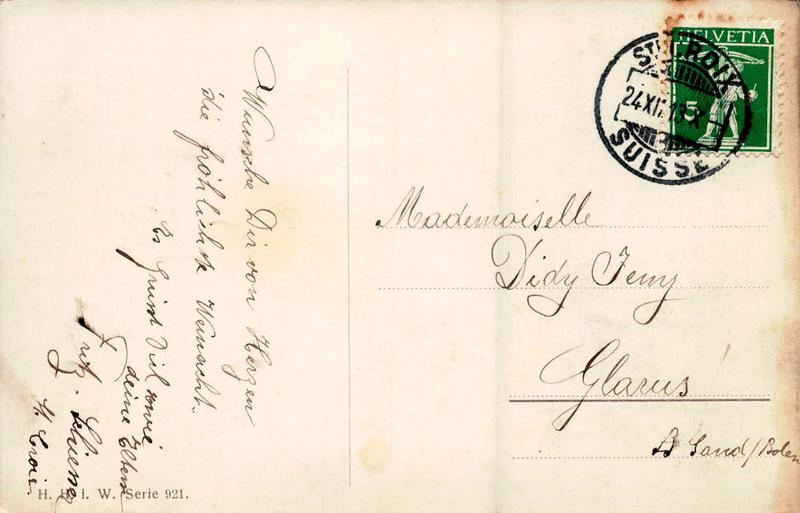 Wünsche Dir von Herzen
die fröhlichste Weinacht.
Es Grüsst Dich sowie
deine Eltern
Fritz
St. Croix.
H. H. i. W. Serie 921.
HELVETIA
5
STE CROIX
24.XII.13-X
SUISSE
Mademoiselle
Didy Jenny
Glarus
Sand/Bolen